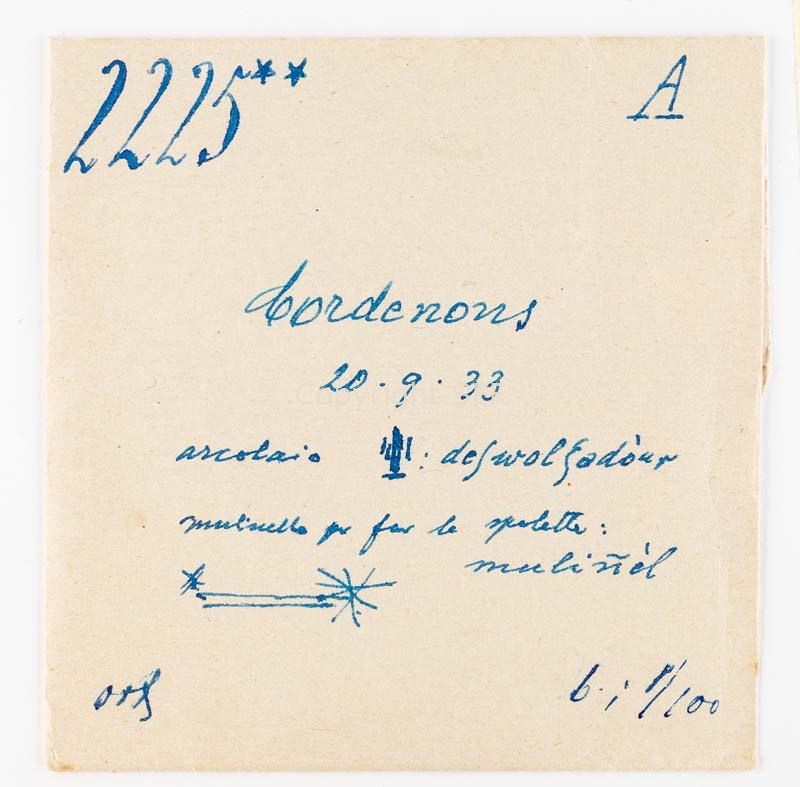 2225** A
Cordenons
20.9.33
arcolaio : deʃwolʒadòur
mulinello per far le spolette:
muliñèl
orʒ
6. ; 1/100